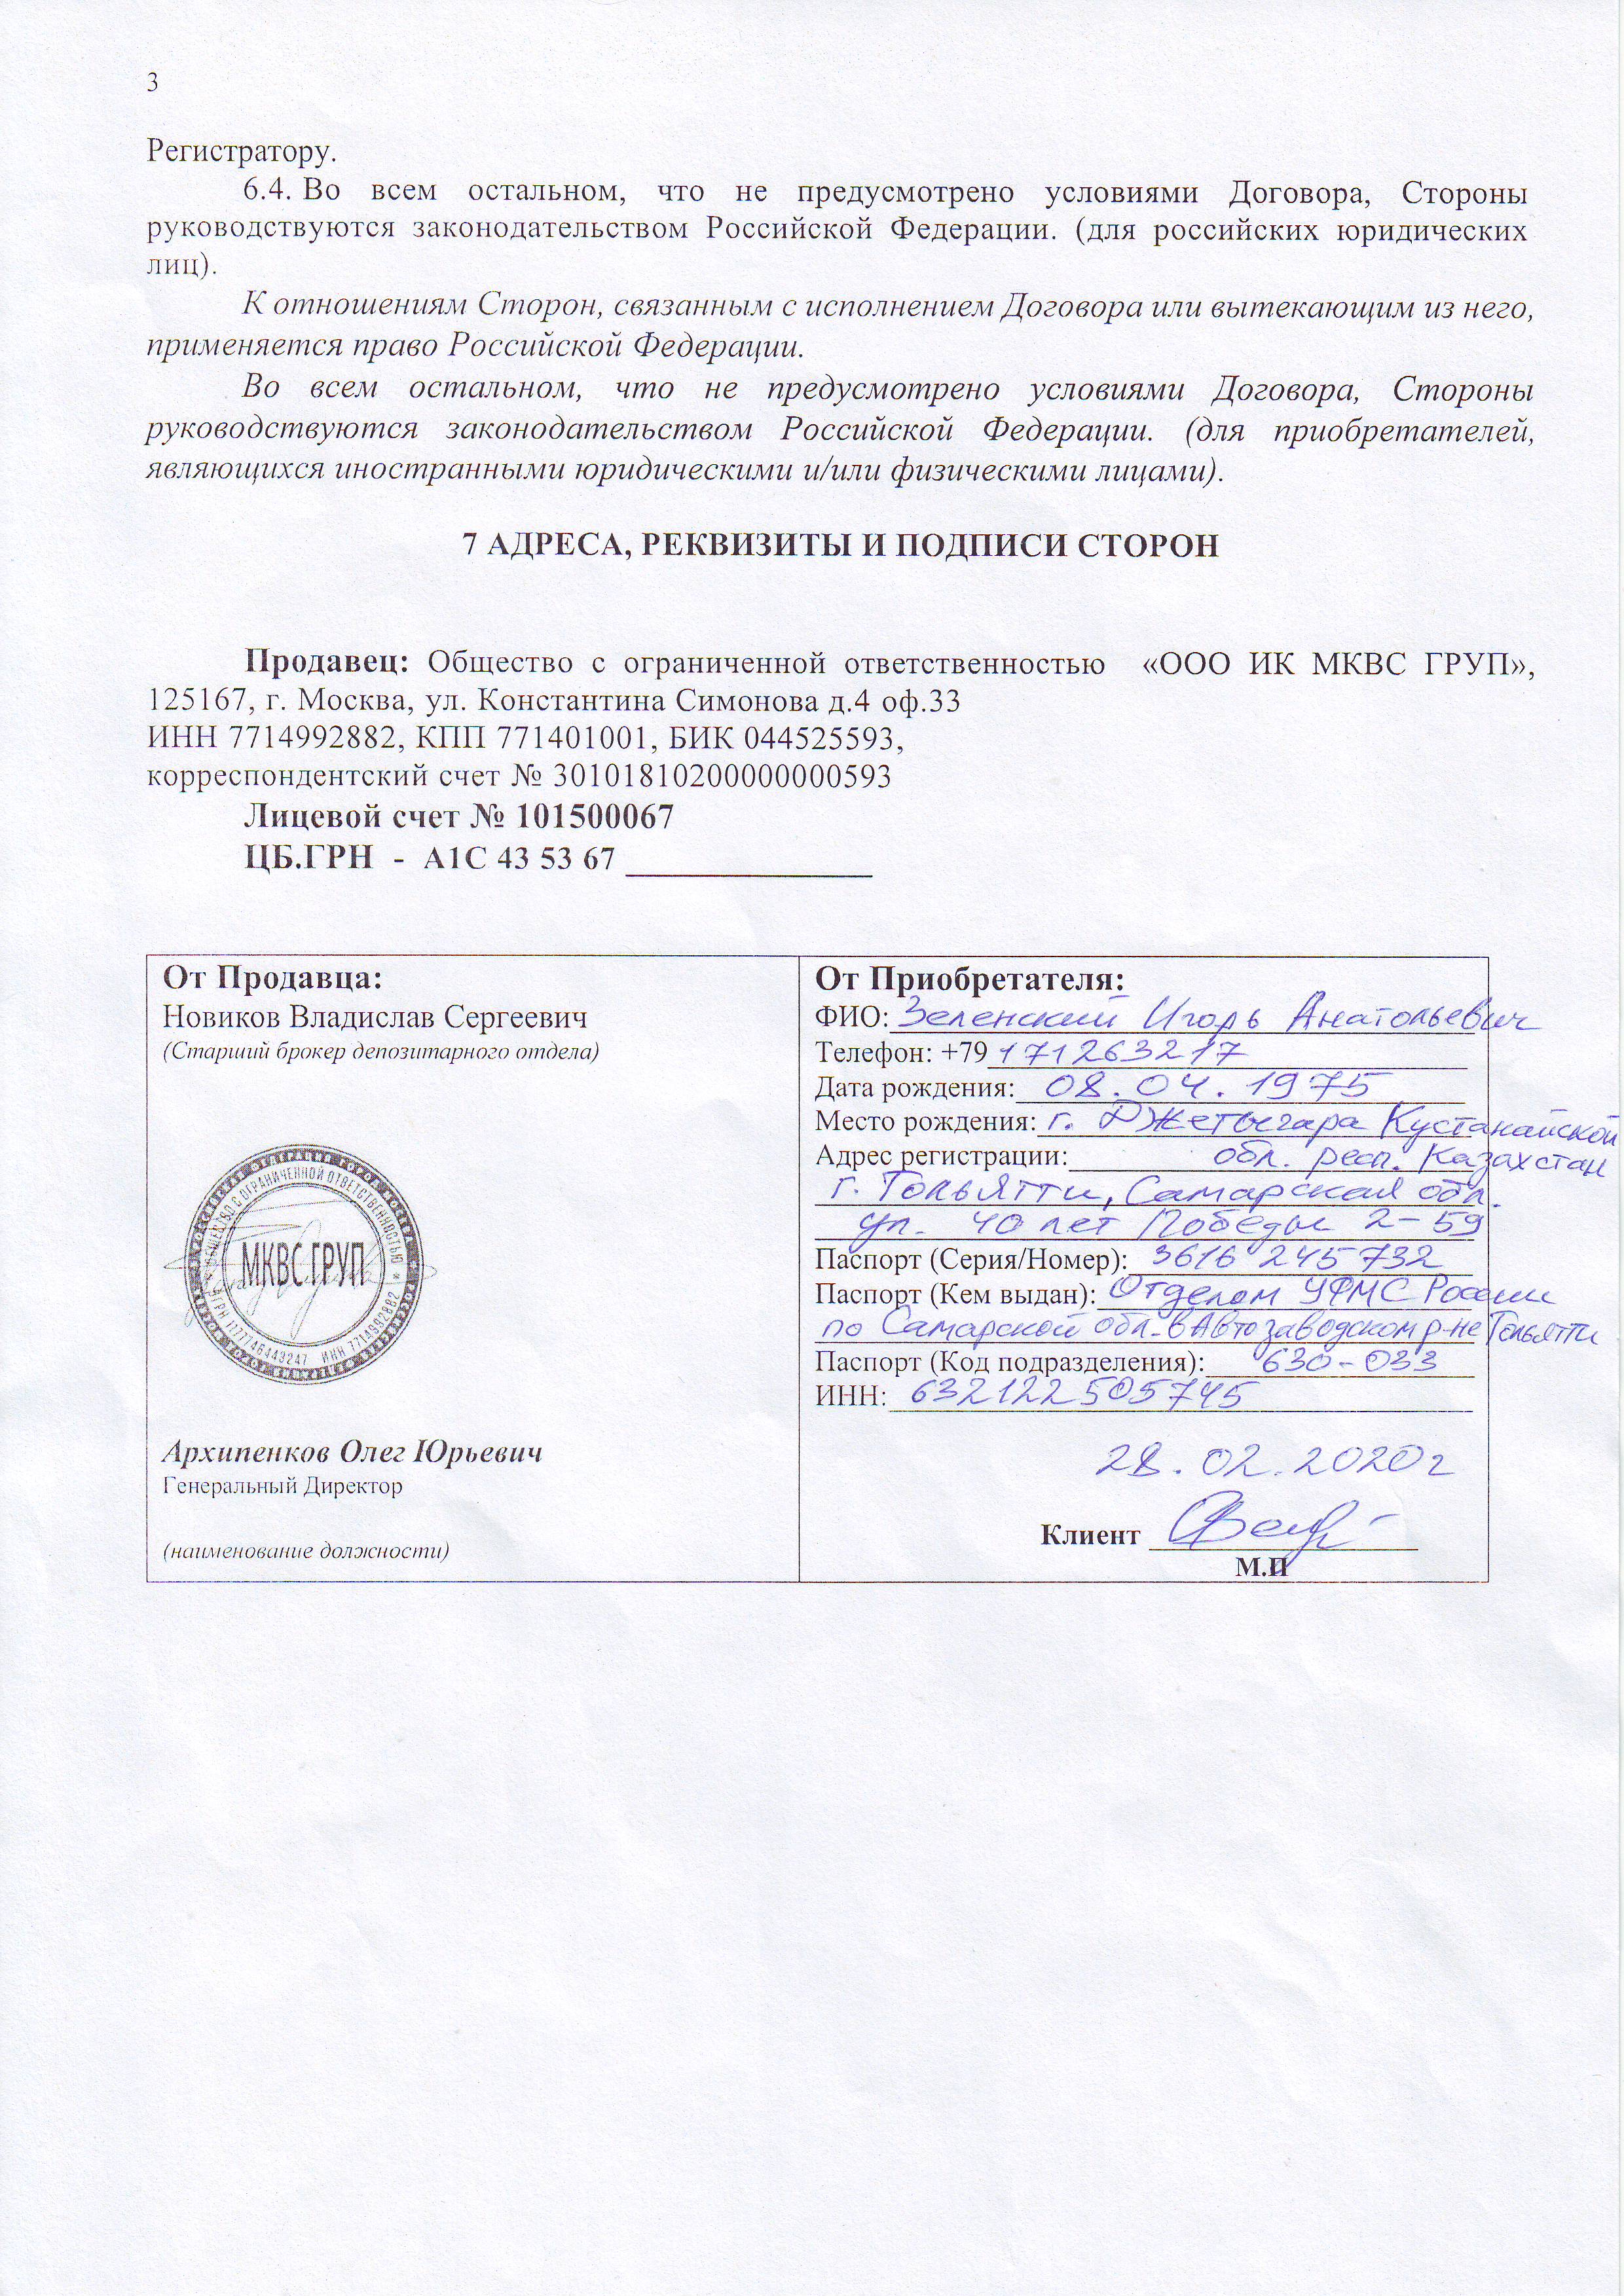 3
Регистратору.
6.4. Во всем остальном, что не предусмотрено условиями Договора, Стороны
руководствуются законодательством Российской Федерации. (для российских юридических
лиц).
К отношениям Сторон, связанным с исполнением Договора или вытекающим из него,
применяется право Российской Федерации.
Во всем остальном, что не предусмотрено условиями Договора, Стороны
руководствуются законодательством Российской Федерации. (для приобретателей,
являющихся иностранными юридическими и/или физическими лицами).
7 АДРЕСА, РЕКВИЗИТЫ И ПОДПИСИ СТОРОН
Продавец: Общество с ограниченной ответственностью «ООО ИК МКВС ГРУП»,
125167, г. Москва, ул. Константина Симонова д.4 оф.33
ИНН 7714992882, КПП 771401001, БИК 044525593,
корреспондентский счет № 30101810200000000593
Лицевой счет № 101500067
ЦБ.ГРН - А1С 43 53 67
От Продавца:
Новиков Владислав Сергеевич
(Старший брокер депозитарного отдела)
ОБЩЕСТВО С ОГРАНИ�ченной ОТВЕТСТВЕННОСТЬЮ
МКВС ГРУП
ИНН 7714992882
Архипенков Олег Юрьевич
Генеральный Директор
(наименование должности)
От Приобретателя:
ФИО: Зеленский Игорь Анатольевич
Телефон: +79171263217
Дата рождения: 08.04.1975
Место рождения: г. Джетыгара Кустанайской
Адрес регистрации: обл. респ. Казахстан
г. Тольятти, Самарская обл.
ул. 40 лет Победы 2-59
Паспорт (Серия/Номер): 3616 245732
Паспорт (Кем выдан): Отделом УФМС России
по Самарской обл. в Автозаводском р-не Тольятти
Паспорт (Код подразделения): 630-033
ИНН: 632122505745
28.02.2020г
Клиент
М.П